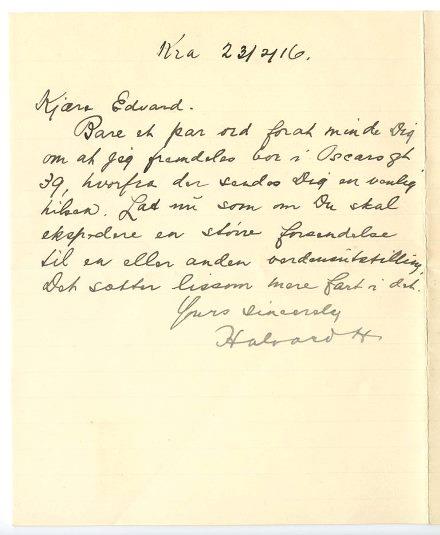 Kra 23/2/16.
Kjære Edvard.
Bare et par ord forat minde Dig
om at jeg fremdeles bor i Oscarsgt
39, hvorfra der sendes Dig en venlig
hilsen. Lad nu som om Du skal
ekspedere en større forsendelse
til en eller anden verdensutstilling,
Det sætter lissom mere fart i det.
Yours sincerely
Halvard H